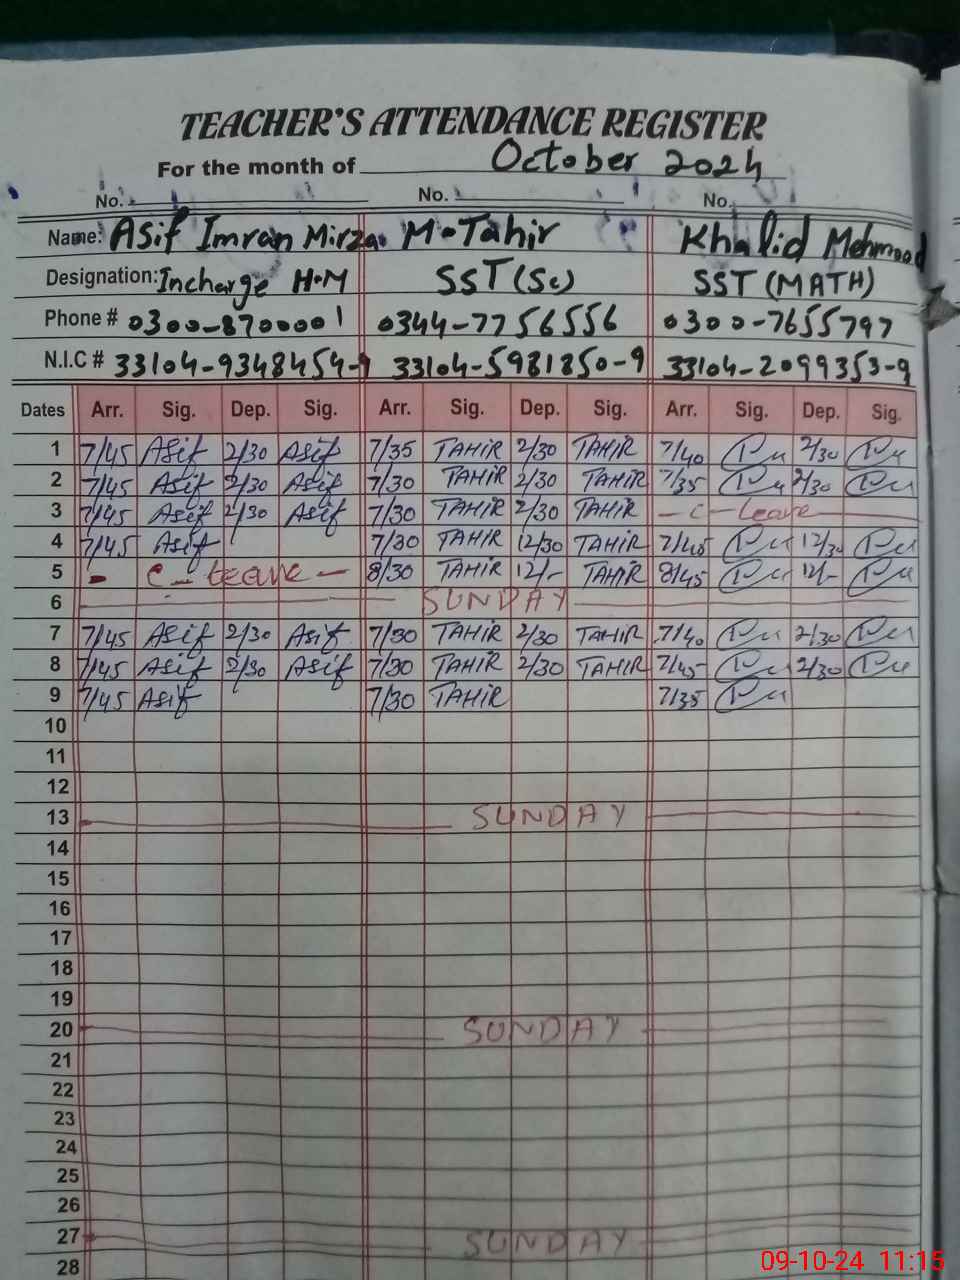 TEACHER'S ATTENDANCE REGISTER
For the month of October 2024
No. No. No.
Name: Asif Imran Mirza M. Tahir Khalid Mehmood
Designation: Incharge H.M SST (Sc) SST (MATH)
Phone # 0300-8700001 0344-7756556 0300-7655797
N.I.C # 33104-9348454-9 33104-5981850-9 33104-2099353-9
Dates Arr. Sig. Dep. Sig. Arr. Sig. Dep. Sig. Arr. Sig. Dep. Sig.
1 7/45 Asif 2/30 Asif 7/35 TAHIR 2/30 TAHIR 7/40 2/30
2 7/45 Asif 2/30 Asif 7/30 TAHIR 2/30 TAHIR 7/35 2/30
3 7/45 Asif 2/30 Asif 7/30 TAHIR 2/30 TAHIR - C - Leave
4 7/45 Asif 7/30 TAHIR 12/30 TAHIR 7/45 12/30
5 - C - Leave - 8/30 TAHIR 12/- TAHIR 8/45 12/-
6 SUNDAY
7 7/45 Asif 2/30 Asif 7/30 TAHIR 2/30 TAHIR 7/40 2/30
8 7/45 Asif 2/30 Asif 7/30 TAHIR 2/30 TAHIR 7/45 2/30
9 7/45 Asif 7/30 TAHIR 7/35
10
11
12
13 SUNDAY
14
15
16
17
18
19
20 SUNDAY
21
22
23
24
25
26
27 SUNDAY
28
09-10-24 11:15